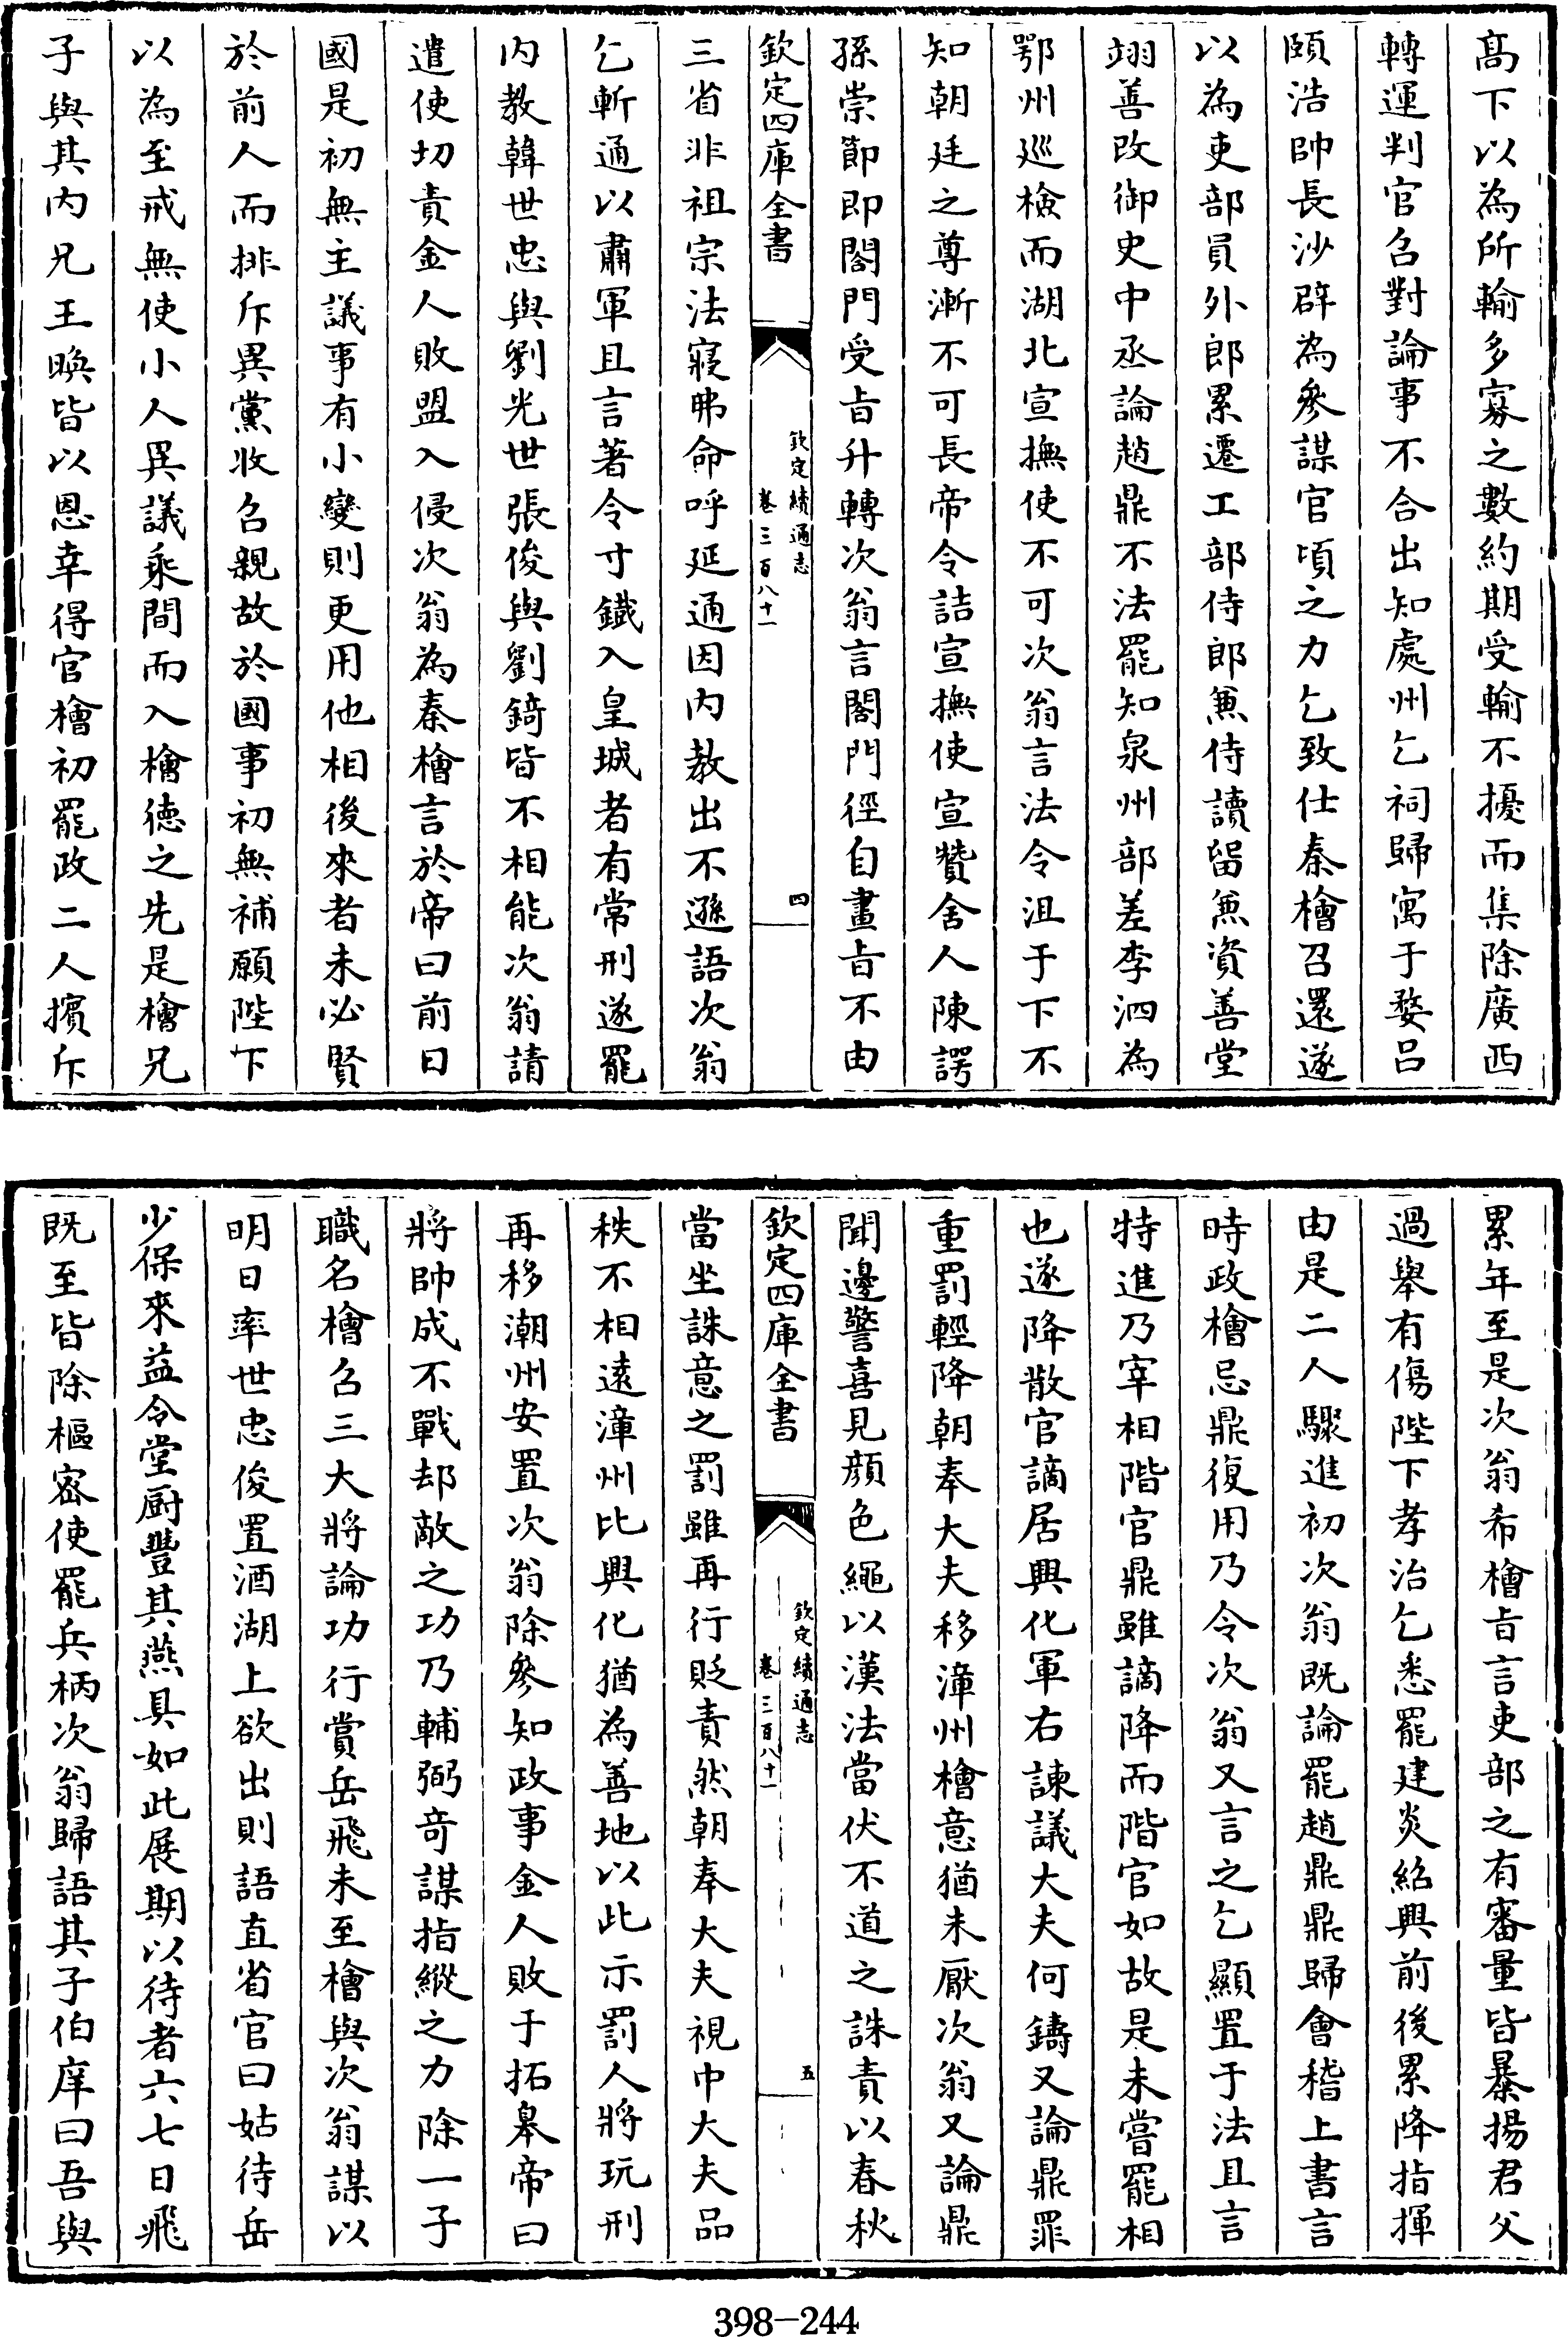 髙下以為所輸多寡之數約期受輸不擾而集除廣西
轉運判官召對論事不合出知處州乞祠歸寓于婺吕
頤浩帥長沙辟為參謀官頃之力乞致仕秦檜召還遂
以為吏部員外郎累遷工部侍郎兼侍讀留兼資善堂
翊善改御史中丞論趙鼎不法罷知泉州部差李泗為
鄂州廵檢而湖北宣撫使不可次翁言法令沮于下不
知朝廷之尊漸不可長帝令詰宣撫使宣贊舍人陳諤
孫崇節即閤門受旨升轉次翁言閤門徑自畫旨不由
欽定四庫全書
欽定續通志
卷三百八十一
四
三省非祖宗法寢昨命呼延通因内教出不遜語次翁
乞斬通以肅軍且言著令寸鐵入皇城者有常刑遂罷
内教韓世忠與劉光世張俊與劉錡皆不相能次翁請
遣使切責金人敗盟入侵次翁為秦檜言於帝曰前日
國是初無主議事有小變則更用他相後來者未必賢
於前人而排斥異黨收召親故於國事初無補願陛下
以為至戒無使小人異議乘間而入檜徳之先是檜兄
子與其内兄王㬇皆以恩幸得官檜初罷政二人擯斥
累年至是次翁希檜旨言吏部之有審量皆暴揚君父
過舉有傷陛下孝治乞悉罷建炎紹興前後累降指揮
由是二人驟進初次翁既論罷趙鼎鼎歸會稽上書言
時政檜忌鼎復用乃令次翁又言之乞顯置于法且言
特進乃宰相階官鼎雖謫降而階官如故是未嘗罷相
也遂降散官謫居興化軍右諫議大夫何鑄又論鼎罪
重罰輕降朝奉大夫移漳州檜意猶未厭次翁又論鼎
聞邊警喜見顔色繩以漢法當伏不道之誅責以春秋
欽定四庫全書
欽定續通志
卷三百八十一
五
當坐誅意之罰雖再行貶責然朝奉大夫視中大夫品
秩不相遠漳州比興化猶為善地以此示罰人將玩刑
再移潮州安置次翁除參知政事金人敗于拓皋帝曰
將帥成不戰却敵之功乃輔弼奇謀指縱之力除一子
職名檜召三大將論功行賞岳飛未至檜與次翁謀以
明日率世忠俊置酒湖上欲出則語直省官曰姑待岳
少保來益令堂廚豐其燕具如此展期以待者六七日飛
既至皆除樞密使罷兵柄次翁歸語其子伯庠曰吾與
398-244